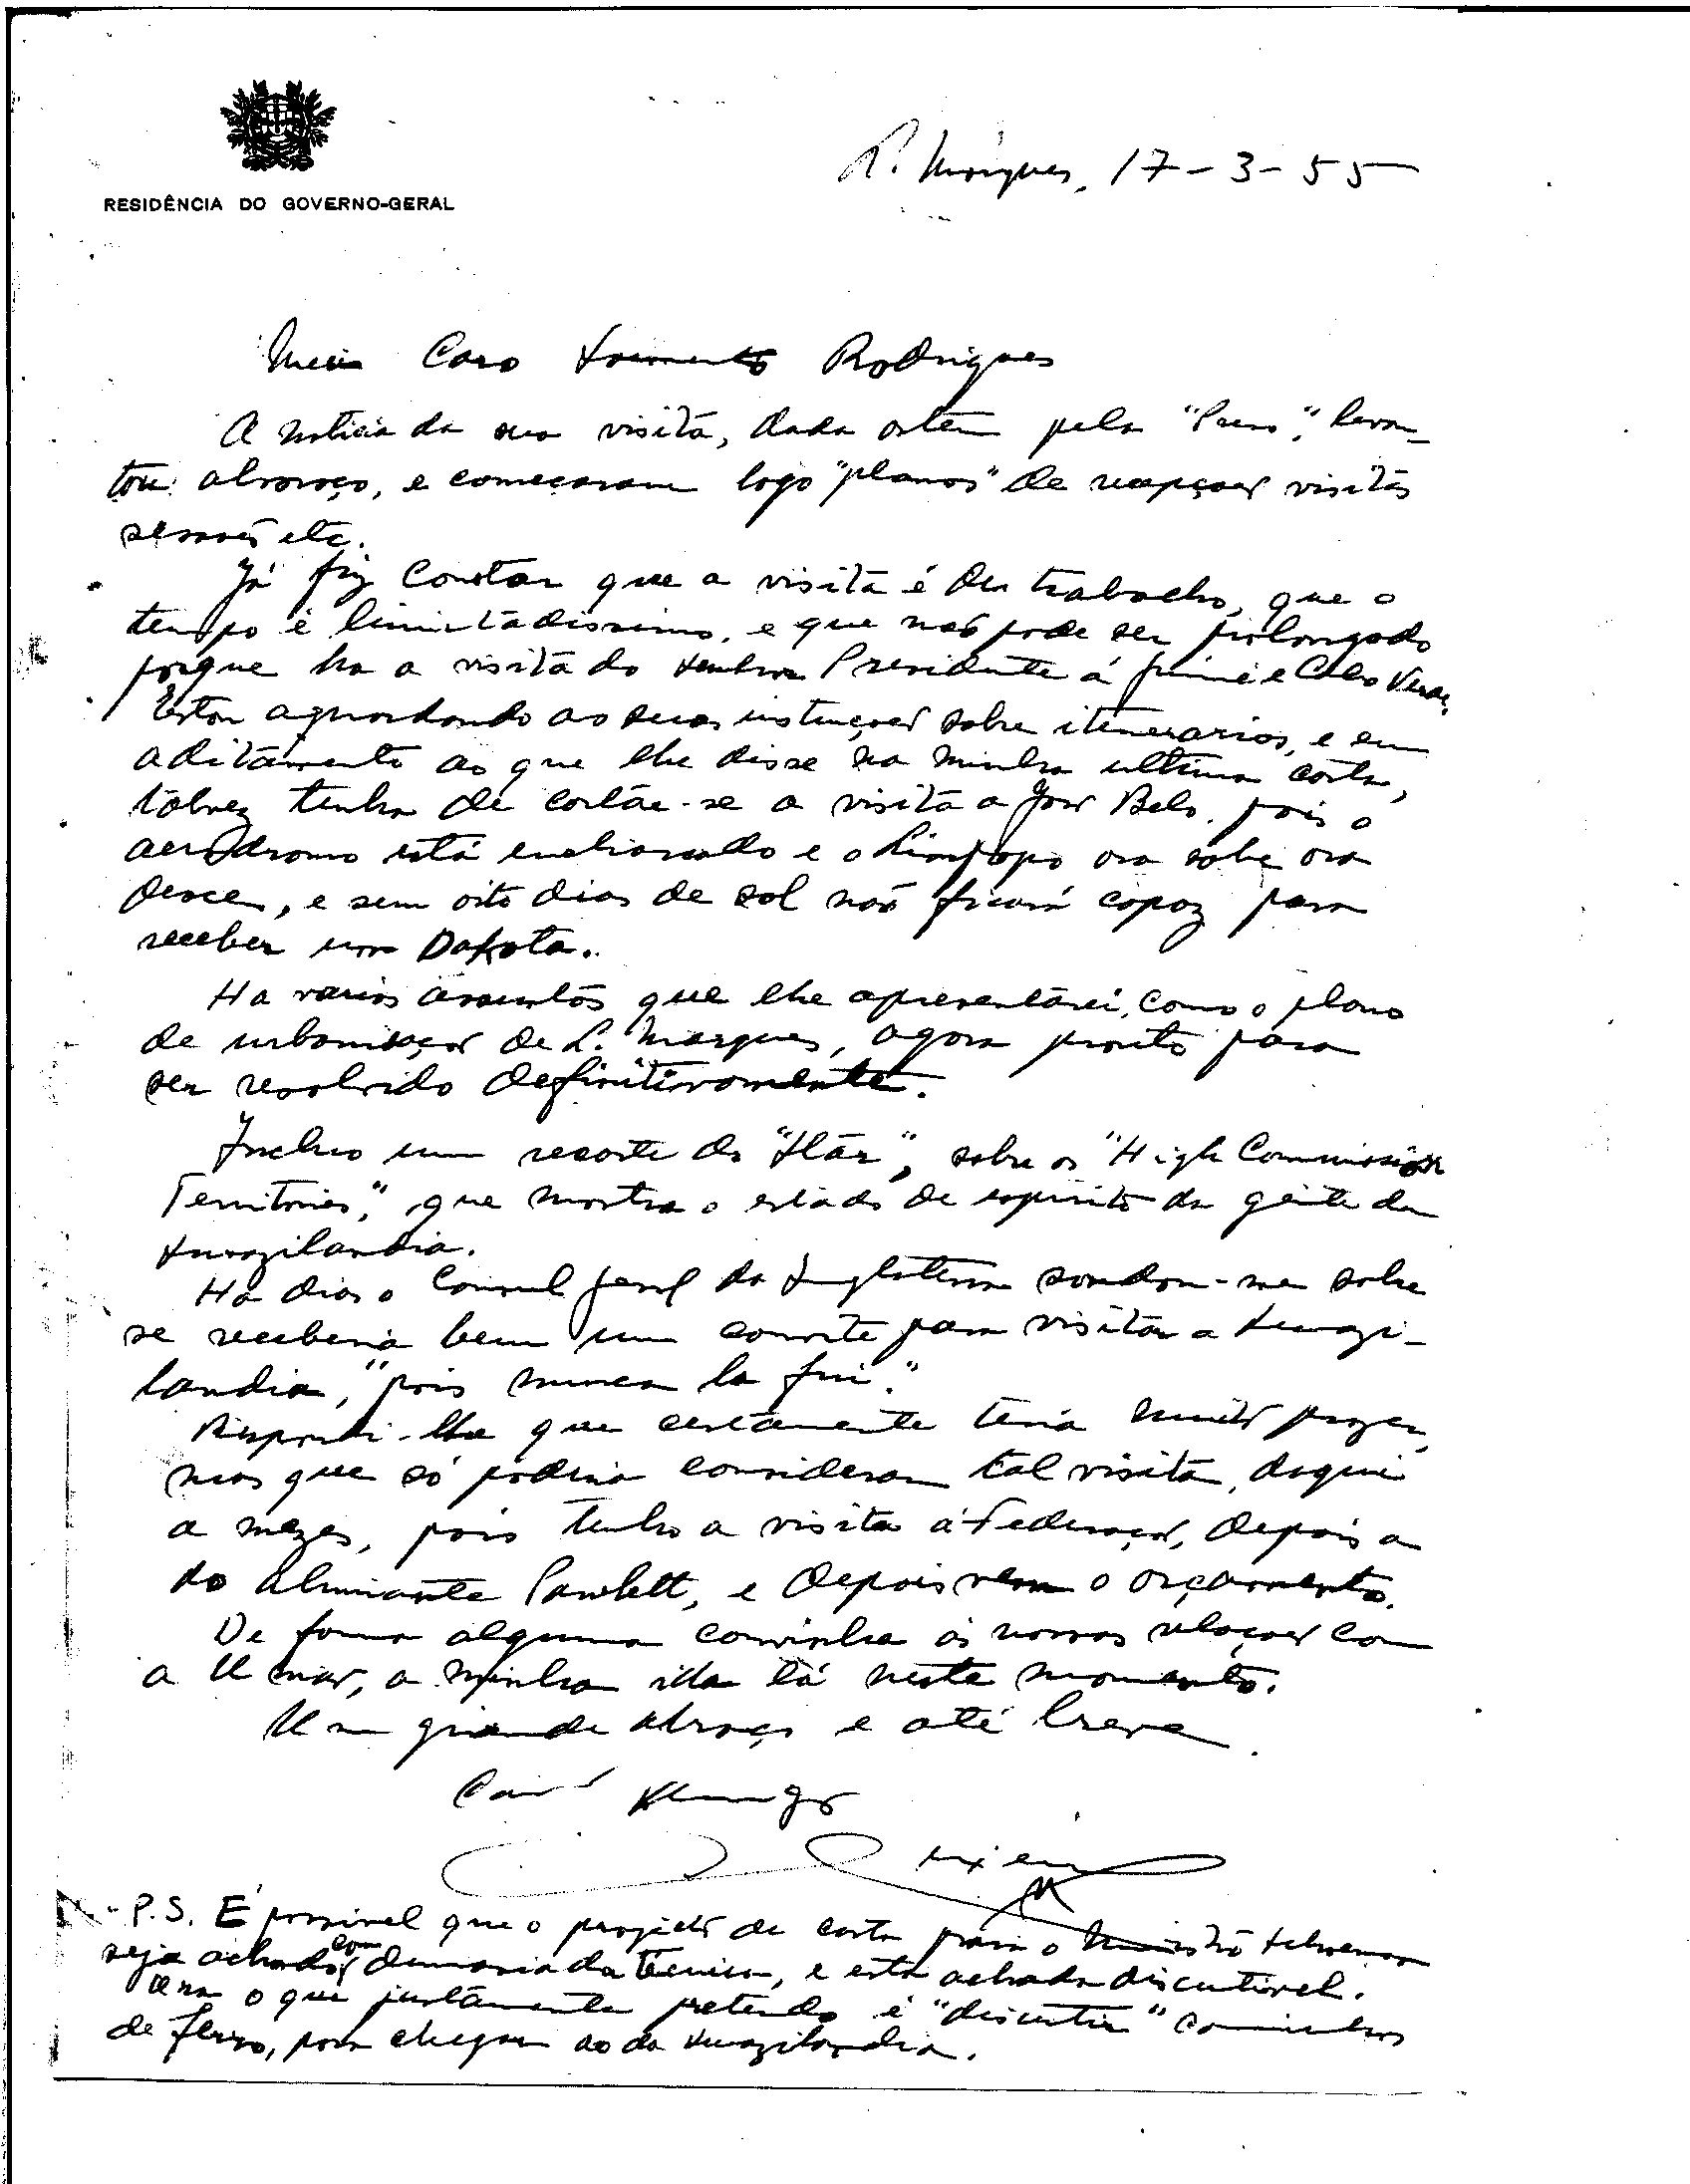 RESIDÊNCIA DO GOVERNO-GERAL
L. Marques, 17-3-55
Meu Caro Sarmento Rodrigues
A noticia da sua visita, dada ontem pela "Lusa", levan-
tou alvoroço, e começaram logo "planos" de recepções visitas
sessões etc.
Já fiz constar que a visita é de trabalho, que o
tempo é limitadissimo, e que não pode ser prolongado
porque ha a visita do Senhor Presidente á Guiné e Cabo Verde.
Estou aguardando as suas instruções sobre itenerarios, e em
aditamento ao que lhe disse na minha ultima carta,
talvez tenha de cortar-se a visita a João Belo, pois o
aerodromo está encharcado e o Limpopo ora sobe ora
desce, e sem oito dias de sol não ficará capaz para
receber um Dakota.
Ha varios assuntos que lhe apresentarei, como o plano
de urbanização de L. Marques, agora pronto para
ser resolvido definitivamente.
Incluo um recorte do "Star", sobre os "High Commission
Territories", que mostra o estado de espirito da gente da
Swazilandia.
Há dias o Consul Geral da Inglaterra sondou-me sobre
se receberia bem um convite para visitar a Swazi-
landia, "pois nunca la fui."
Respondi-lhe que certamente teria muito prazer,
mas que só poderia considerar tal visita, daqui
a mezes, pois tenho a visita á Federação, depois a
do Almirante, e depois vem o orçamento.
De forma alguma convinha ás nossas relações com
a U mar, a minha ida lá neste momento.
Um grande abraço e até breve
P.S. É possivel que o projecto de carta para o Ministro
seja achado com demasiada tecnica, e esta achada discutivel.
Ora o que justamente pretendo é "discutir" caminhos
de ferro, para chegar ao da Swazilandia.